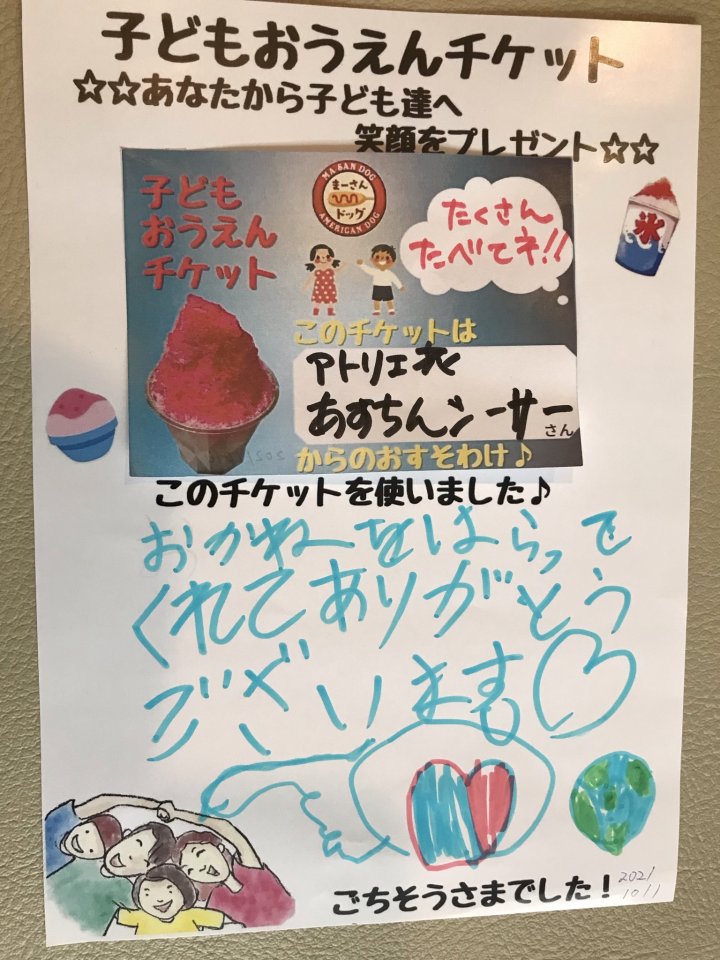 子どもおうえんチケット
☆☆あなたから子ども達へ
笑顔をプレゼント☆☆
子ども
おうえん
チケット
MA SAN DOG
まーさん
ドッグ
AMERICAN DOG
たくさん
たべてネ!!
氷
このチケットは
アトリエ衣
あすちんシーサー
さん
からのおすそわけ♪
このチケットを使いました♪
おかねをはらって
くれてありがとう
ございます
ごちそうさまでした!
2021
10/1